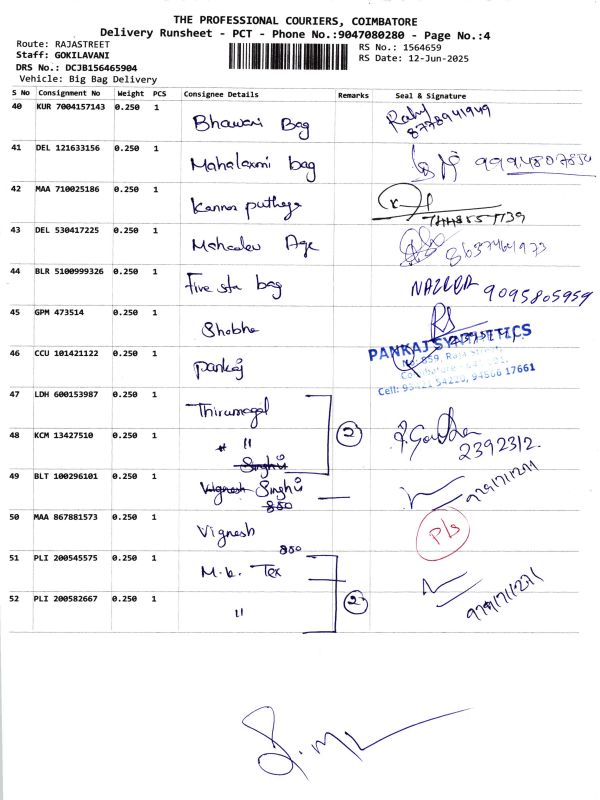 THE PROFESSIONAL COURIERS, COIMBATORE
Delivery Runsheet - PCT - Phone No.:9047080280 - Page No.:4
Route: RAJASTREET
RS No.: 1564659
Staff: GOKILAVANI
RS Date: 12-Jun-2025
DRS No.: DCJB156465904
Vehicle: Big Bag Delivery
S No Consignment No Weight PCS Consignee Details Remarks Seal & Signature
40 KUR 7004157143 0.250 1
Bhawani Bag
8778941949
41 DEL 121633156 0.250 1
Mahalaxmi bag
42 MAA 710025186 0.250 1
Kannan puthaga
43 DEL 530417225 0.250 1
Mahadev Age
44 BLR 5100999326 0.250 1
Five sta bag
9095805959
45 GPM 473514 0.250 1
Shobha
RS
46 CCU 101421122 0.250 1
pankaj
PANKAJ SYNTHETICS
Cell: 17661
47 LDH 600153987 0.250 1
Thirumagal
2
48 KCM 13427510 0.250 1
"
Singhvi
2392312.
49 BLT 100296101 0.250 1
Vignesh Singhvi
850
50 MAA 867881573 0.250 1
Vignesh
850
P/s
51 PLI 200545575 0.250 1
M.k. Tex
52 PLI 200582667 0.250 1
"
2